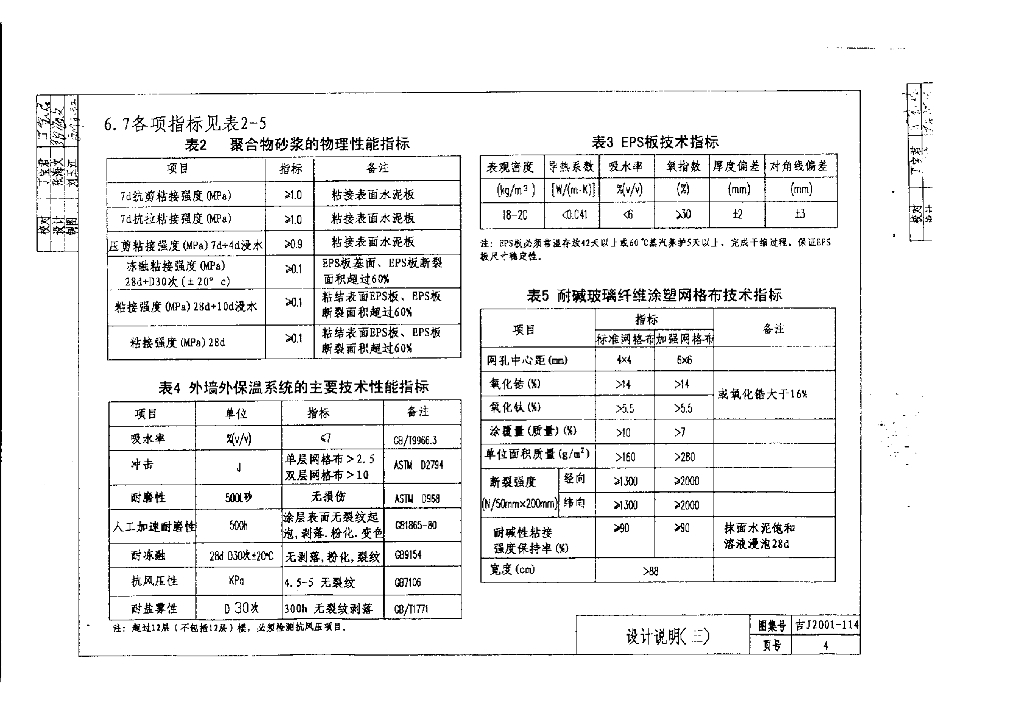 6.7各项指标见表2-5
表2 聚合物砂浆的物理性能指标
项目 指标 备注
7d抗剪粘接强度(MPa) ≥1.0 粘接表面水泥板
7d抗拉粘接强度(MPa) ≥1.0 粘接表面水泥板
压剪粘接强度(MPa)7d+4d浸水 ≥0.9 粘接表面水泥板
冻融粘接强度(MPa)
28d+D30次(±20° c) ≥0.1 EPS板基面、EPS板断裂
面积超过60%
粘接强度(MPa)28d+10d浸水 ≥0.1 粘结表面EPS板、EPS板
断裂面积超过60%
粘接强度(MPa)28d ≥0.1 粘结表面EPS板、EPS板
断裂面积超过60%
表4 外墙外保温系统的主要技术性能指标
项目 单位 指标 备注
吸水率 %(v/v) ≤7 GB/T9966.3
冲击 J 单层网格布>2.5
双层网格布>10 ASTM D2794
耐磨性 500L砂 无损伤 ASTM D968
人工加速耐磨性 500h 涂层表面无裂纹起
泡,剥落.粉化.变色 GB1865-80
耐冻融 28d D30次±20℃ 无剥落,粉化,裂纹 GB9154
抗风压性 KPa 4.5-5 无裂纹 GB7106
耐盐雾性 D 30次 300h 无裂纹剥落 GB/T1771
注：超过12层(不包括12层)楼，必须检测抗风压项目。
表3 EPS板技术指标
表观密度 导热系数 吸水率 氧指数 厚度偏差 对角线偏差
(kg/m³) [W/(m·K)] %(v/v) (%) (mm) (mm)
18-20 ≤0.041 ≤6 ≥30 ±2 ±3
注：EPS板必须常温存放42天以上或60℃蒸汽养护5天以上，完成干缩过程，保证EPS
板尺寸稳定性。
表5 耐碱玻璃纤维涂塑网格布技术指标
项目 指标 备注
标准网格布 加强网格布
网孔中心距(mm) 4×4 6×6
氧化锆(%) >14 >14 或氧化锆大于16%
氧化钛(%) >5.5 >5.5
涂覆量(质量)(%) >10 >7
单位面积质量(g/m²) >160 >280
断裂强度
(N/50mm×200mm) 经向 ≥1300 ≥2000
纬向 ≥1300 ≥2000
耐碱性粘接
强度保持率(%) ≥90 ≥90 抹面水泥饱和
溶液浸泡28d
宽度(cm) >88
设计说明(三)
图集号 吉J2001-114
页号 4
校对
设计
制图
校对
设计